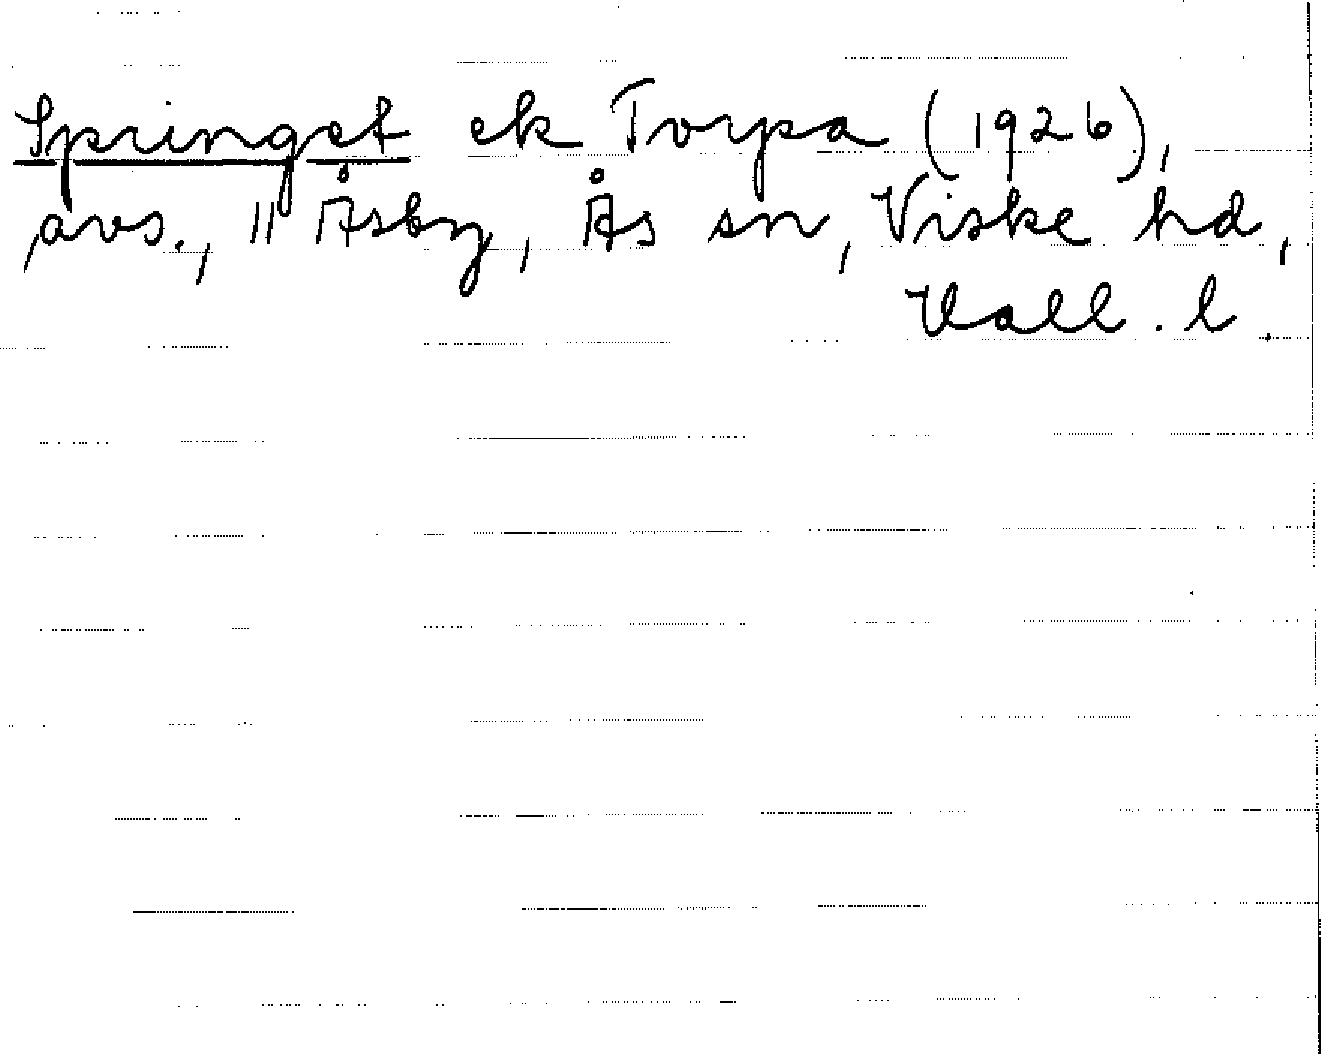 Springet ek Torpa (1926),
avs., " Åsby, Ås sn, Viske hd,
Hall. l.